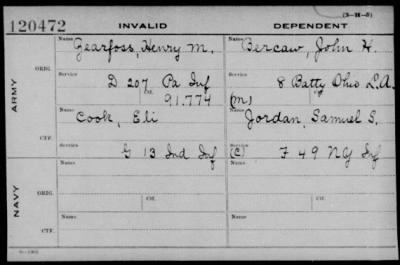 (3-H-5)
120472 INVALID DEPENDENT
Name Gearfoss, Henry M. Name Bercaw, John H.
ARMY
ORIG. Service D 207 Pa Inf Service 8 Batty Ohio L.A.
Ctf. 91.774 (M)
Name Cook, Eli Name Jordan, Samuel S.
CTF. Service G 13 Ind Inf Service (C) F 49 NY Inf
NAVY
Name Name
ORIG. Ctf. Ctf.
Name Name
CTF.